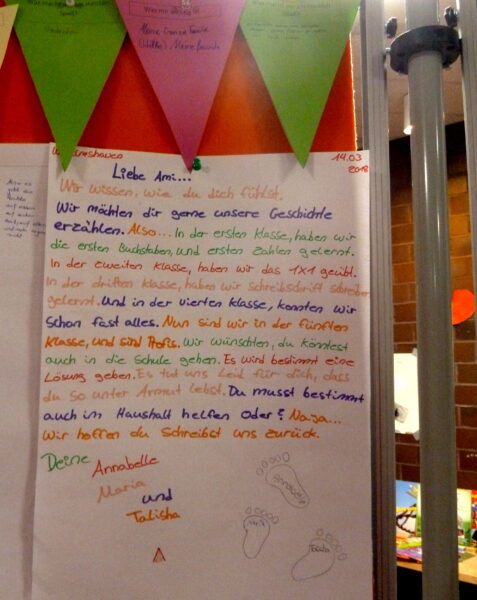 Meine Ganze Familie
Meine Freunde
14.03
2018
Liebe Ami....
Wir wissen, wie du dich fühlst.
Wir möchten dir gerne unsere Geschichte
erzählen. Also... In der ersten Klasse, haben wir
die ersten Buchstaben, und ersten Zahlen gelernt.
In der zweiten Klasse, haben wir das 1x1 geübt.
In der dritten Klasse, haben wir Schreibschrift schreiben
gelernt. Und in der vierten Klasse, konnten wir
schon fast alles. Nun sind wir in der fünften
Klasse, und sind Profis. Wir wünschten, du könntest
auch in die Schule gehen. Es wird bestimmt eine
Lösung geben. Es tut uns Leid für dich, dass
du so unter Armut lebst. Du musst bestimmt
auch im Haushalt helfen Oder? Naja...
Wir hoffen du schreibst uns zurück.
Deine Annabelle
Maria
und
Talisha
Annabelle
Maria
Talisha